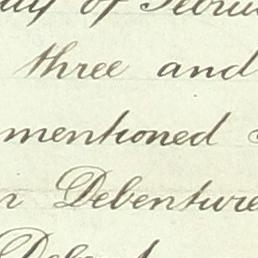 day of Febru
three and
mentioned
n Debenture
Debent